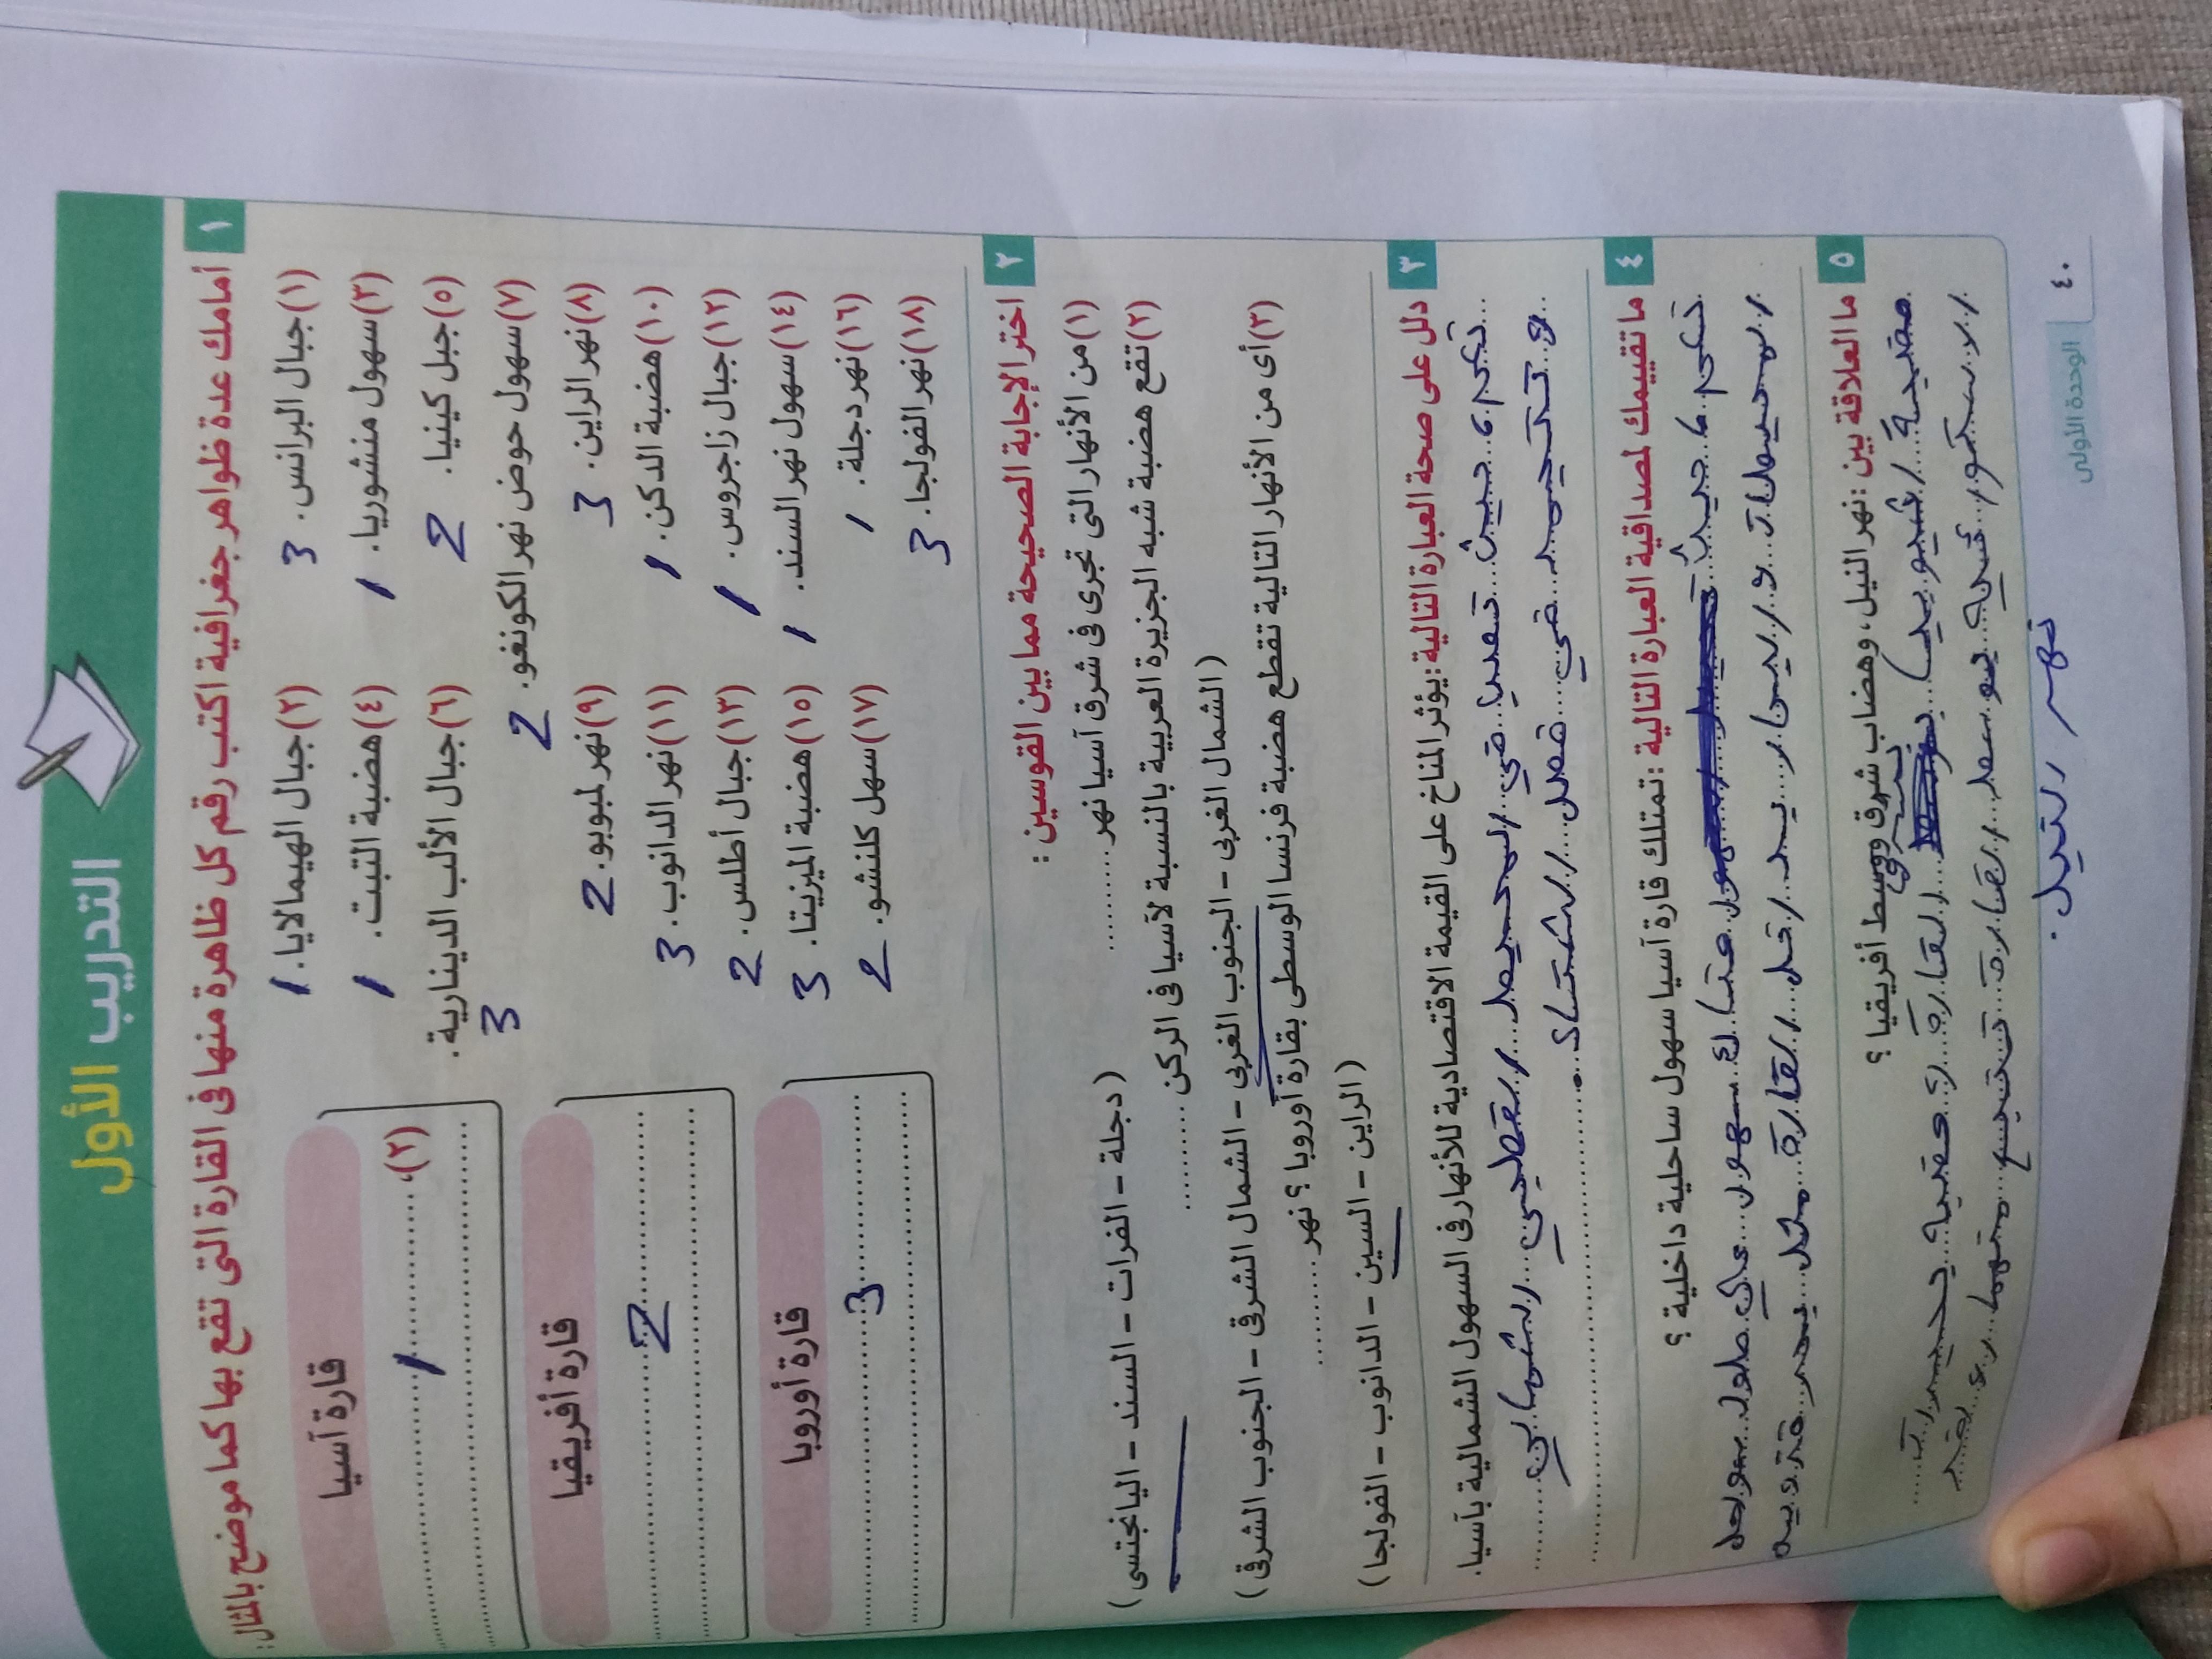 التدريب الأول
١ أمامك عدة ظواهر جغرافية اكتب رقم كل ظاهرة منها فى القارة التى تقع بها كما موضح بالمثال :
(١) جبال البرانس. 3
(٢) جبال الهيمالايا. 1
(٣) سهول منشوريا. 1
(٤) هضبة التبت. 1
(٥) جبل كينيا. 2
(٦) جبال الألب الدينارية. 3
(٧) سهول حوض نهر الكونغو. 2
(٨) نهر الراين. 3
(٩) نهر لمبوبو. 2
(١٠) هضبة الدكن. 1
(١١) نهر الدانوب. 3
(١٢) جبال زاجروس. 1
(١٣) جبال أطلس. 2
(١٤) سهول نهر السند. 1
(١٥) هضبة الميزيتا. 3
(١٦) نهر دجلة. 1
(١٧) سهل كلنشو. 2
(١٨) نهر الفولجا. 3
قارة آسيا
(٢)، 1
قارة أفريقيا
2
قارة أوروبا
3
٢ اختر الإجابة الصحيحة مما بين القوسين :
(١) من الأنهار التى تجرى فى شرق آسيا نهر .......... (دجلة - الفرات - السند - اليانجتسى)
(٢) تقع هضبة شبه الجزيرة العربية بالنسبة لآسيا فى الركن ..........
(الشمال الغربى - الجنوب الغربى - الشمال الشرقى - الجنوب الشرقى)
(٣) أى من الأنهار التالية تقطع هضبة فرنسا الوسطى بقارة أوروبا ؟ نهر ..........
(الراين - السين - الدانوب - الفولجا)
٣ دلل على صحة العبارة التالية : يؤثر المناخ على القيمة الاقتصادية للأنهار فى السهول الشمالية بآسيا.
المحيط القطبي الشمالي
و تتجمد في فصل الشتاء.
٤ ما تقييمك لمصداقية العبارة التالية : تمتلك قارة آسيا سهول ساحلية داخلية ؟
هناك سهول على طول سواحل
داخل القارة مثل
٥ ما العلاقة بين : نهر النيل، وهضاب شرق ووسط أفريقيا ؟
هضبة شرق القارة
وسط القارة تنبع منهما
نهر النيل.
الوحدة الأولى
٤٠